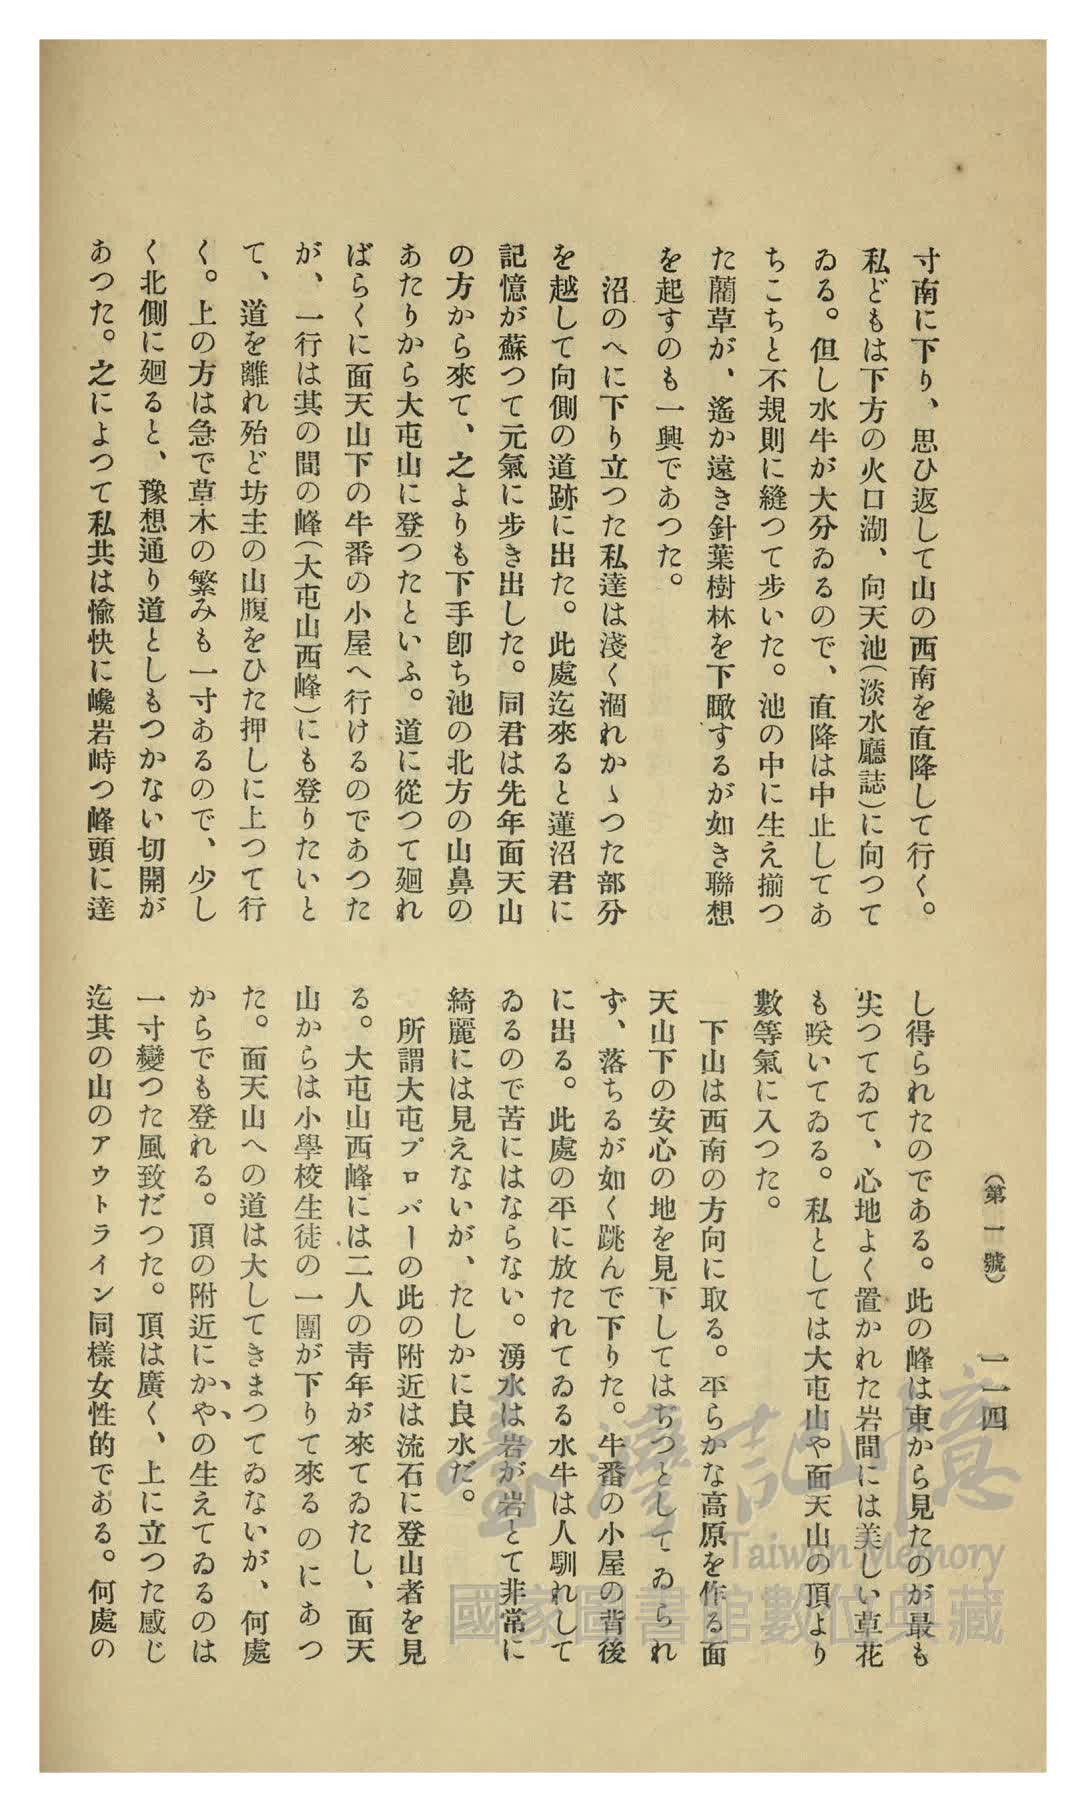 (第一號)　一一四
寸南に下り、思ひ返して山の西南を直降して行く。
私どもは下方の火口湖、向天池(淡水廳誌)に向つて
ゐる。但し水牛が大分ゐるので、直降は中止してあ
ちこちと不規則に縫つて步いた。池の中に生え揃つ
た藺草が、遙か遠き針葉樹林を下瞰するが如き聯想
を起すのも一興であつた。
沼のへに下り立つた私達は淺く涸れかゝつた部分
を越して向側の道跡に出た。此處迄來ると蓮沼君に
記憶が蘇つて元氣に步き出した。同君は先年面天山
の方から來て、之よりも下手卽ち池の北方の山鼻の
あたりから大屯山に登つたといふ。道に從つて廻れ
ばらくに面天山下の牛番の小屋へ行けるのであつた
が、一行は其の間の峰(大屯山西峰)にも登りたいと
て、道を離れ殆ど坊主の山腹をひた押しに上つて行
く。上の方は急で草木の繁みも一寸あるので、少し
く北側に廻ると、豫想通り道としもつかない切開が
あつた。之によつて私共は愉快に巉岩峙つ峰頭に達
し得られたのである。此の峰は東から見たのが最も
尖つてゐて、心地よく置かれた岩間には美しい草花
も咲いてゐる。私としては大屯山や面天山の頂より
數等氣に入つた。
下山は西南の方向に取る。平らかな高原を作る面
天山下の安心の地を見下してはぢつとしてゐられ
ず、落ちるが如く跳んで下りた。牛番の小屋の背後
に出る。此處の平に放たれてゐる水牛は人馴れして
ゐるので苦にはならない。湧水は岩が岩とて非常に
綺麗には見えないが、たしかに良水だ。
所謂大屯プロパーの此の附近は流石に登山者を見
る。大屯山西峰には二人の靑年が來てゐたし、面天
山からは小學校生徒の一團が下りて來るのにあつ
た。面天山への道は大してきまつてゐないが、何處
からでも登れる。頂の附近にかやの生えてゐるのは
一寸變つた風致だつた。頂は廣く、上に立つた感じ
迄其の山のアウトライン同樣女性的である。何處の
臺灣記憶
Taiwan Memory
國家圖書館數位典藏